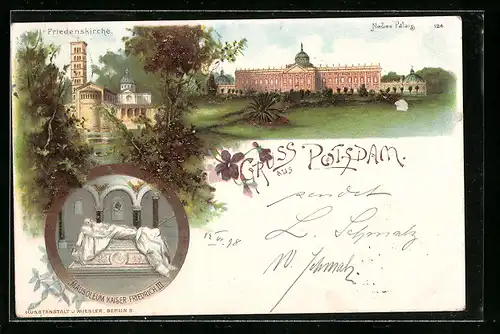 Friedenskirche.
Neues Palais
124
GRUSS
aus
POTSDAM.
sendet
L. Schmalz
W. Schmalz
12 VI 98
MAUSOLEUM KAISER FRIEDRICH III.
KUNSTANSTALT J. MIESLER, BERLIN S.